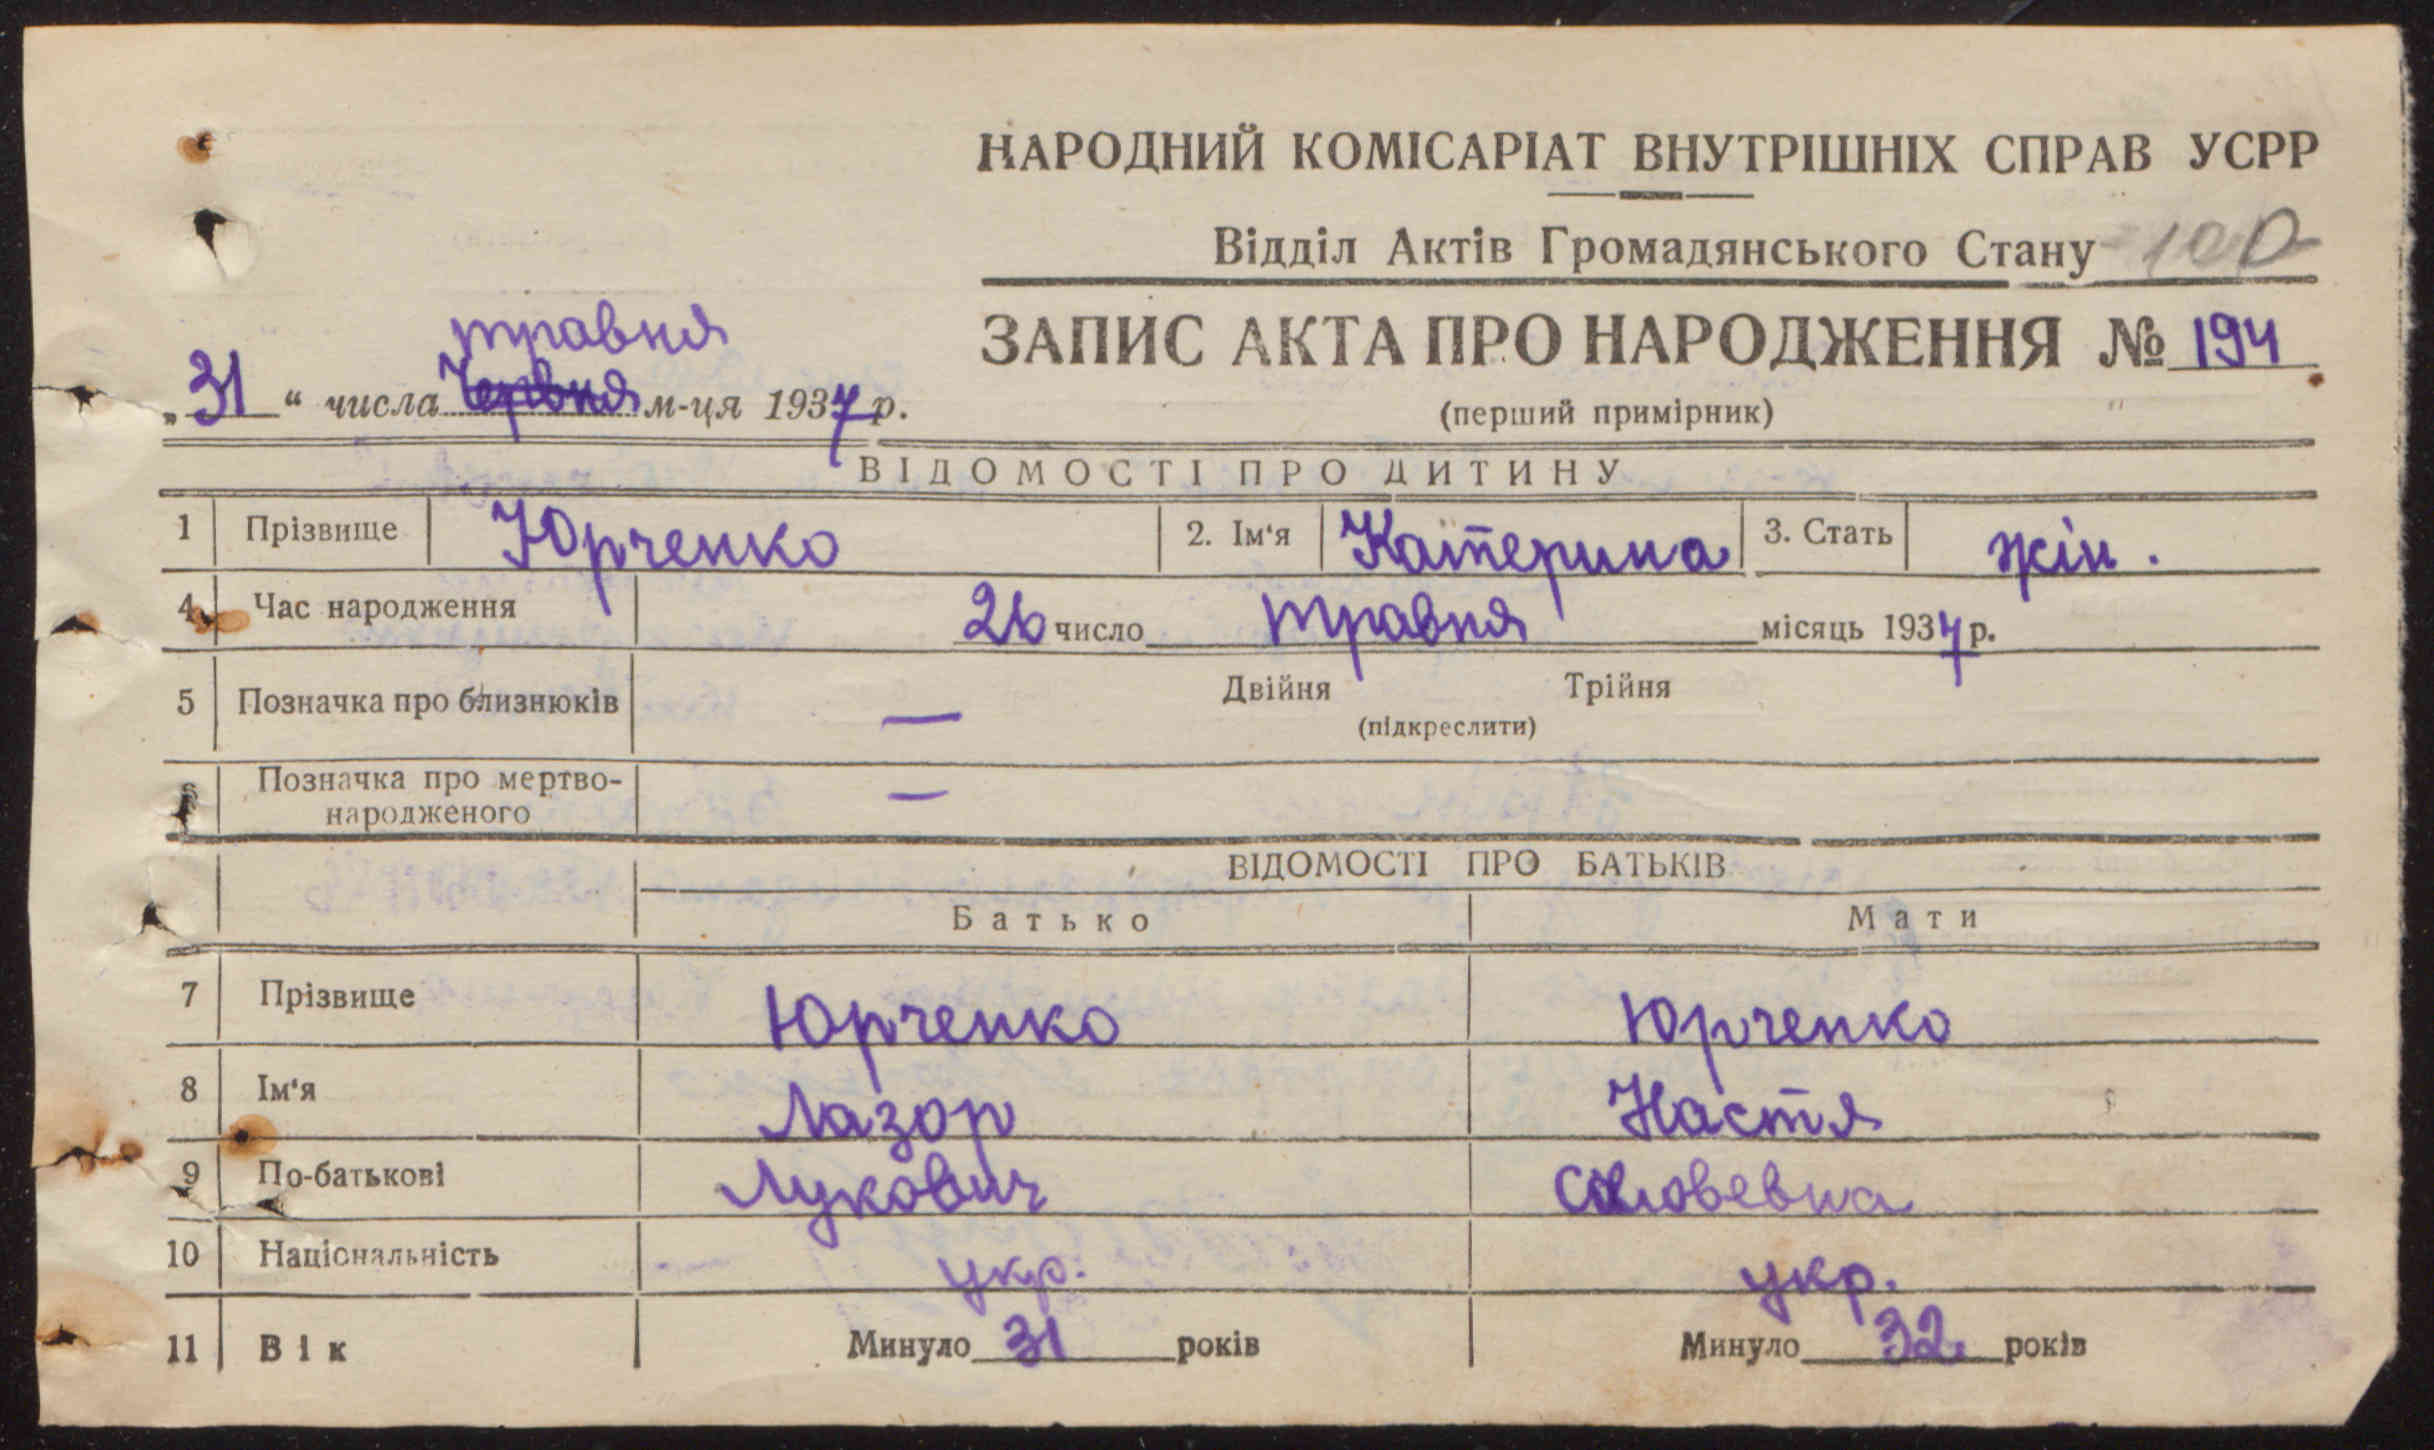 НАРОДНИЙ КОМІСАРІАТ ВНУТРІШНІХ СПРАВ УСРР
Відділ Актів Громадянського Стану 100
ЗАПИС АКТА ПРО НАРОДЖЕННЯ № 194
(перший примірник)
травня
„31“ числа Червня м-ця 1937 р.
ВІДОМОСТІ ПРО ДИТИНУ
1 Прізвище Юрченко 2. Ім'я Катерина 3. Стать жін.
4 Час народження 26 число травня місяць 1937 р.
5 Позначка про близнюків — Двійня Трійня
(підкреслити)
6 Позначка про мертво-
народженого —
ВІДОМОСТІ ПРО БАТЬКІВ
Батько Мати
7 Прізвище Юрченко Юрченко
8 Ім'я Лазор Настя
9 По-батькові Лукович
10 Національність укр. укр.
11 Вік Минуло 31 років Минуло 32 років